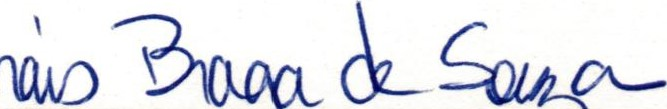 nais Braga de Souza